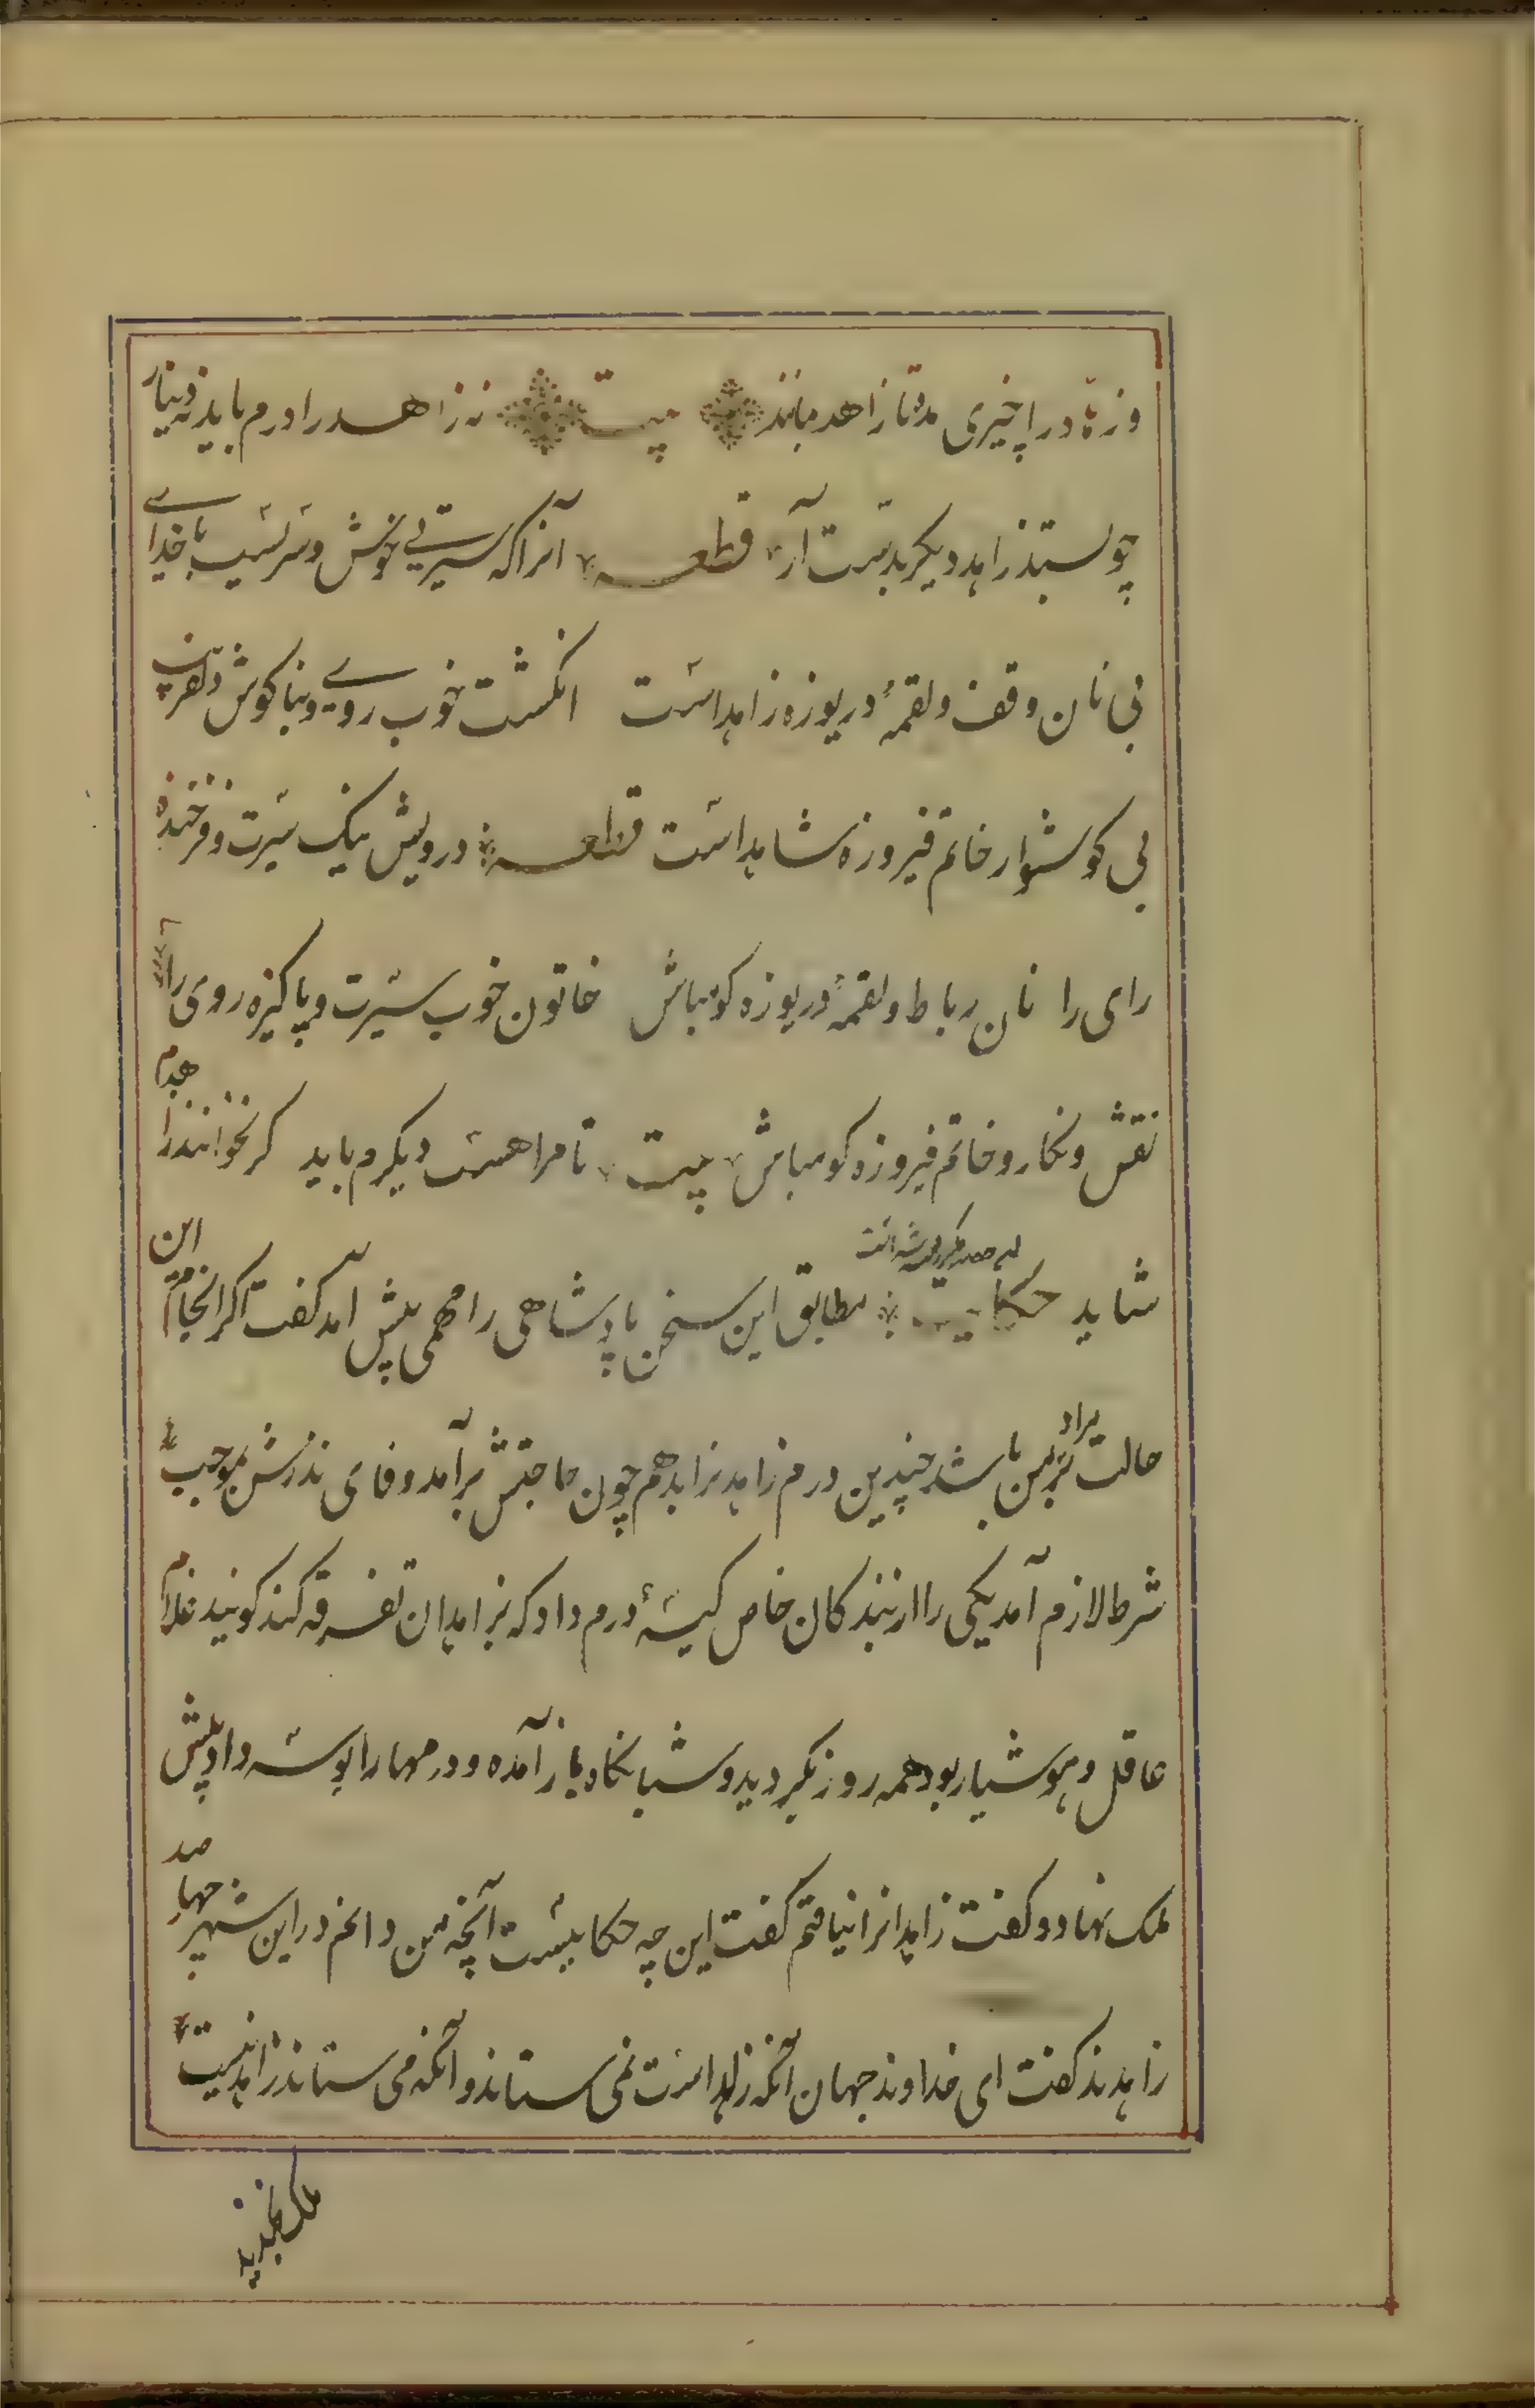 وزهاد را چیزی مده تا زاهد بمانند بیت نه زاهد را درم باید نه دینار
چو بستد زاهد دیگر بدست آر قطعه آنرا که سیرتی خوش و سریست با خدای
بی نان وقف ولقمهٔ دریوزه زاهد است انکشت خوب روی و بناکوش دلفریب
بی کوشوار خاتم فیروزه شاهد است قطعه درویش نیک سیرت و فرخنده
رای را نان رباط ولقمهٔ دریوزه کو مباش خاتون خوب سیرت و پاکیزه روی را
نقش ونکار وخاتم فیروزه کو مباش بیت تا مرا هست دیکرم باید کر نخوانند زاهدم
شاید حکایت مطابق این سخن پادشاهی را مهمی پیش امد کفت اکر انجام این
حالت بمراد من باشد چندین درم زاهدنرا بدهم چون حاجتش برآمد وفای نذرش بموجب
شرط لازم آمد یکی را از بندکان خاص کیسهٔ درم داد که بزاهدان تفرقه کند کویند غلام
عاقل وهوشیار بود همه روز بکردید و شبانکاه باز آمده و درمها را بوسه داد پیش
ملک نهاد و کفت زاهدانرا نیافتم کفت این چه حکایتست آنچه من دانم در این شهر چهار صد
زاهدند کفت ای خداوند جهان آنکه زاهد است نمی ستاند و آنکه می ستاند زاهد نیست
ملک بخندید